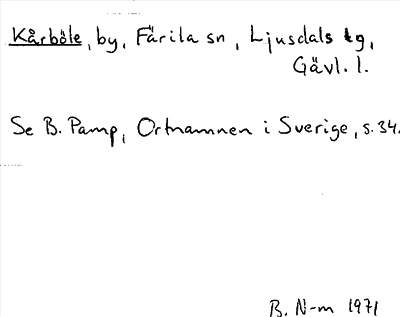 Kårböle, by, Färila sn, Ljusdals tg,
Gävl. l.
Se B. Pamp, Ortnamnen i Sverige, s. 34.
B. N-m 1971